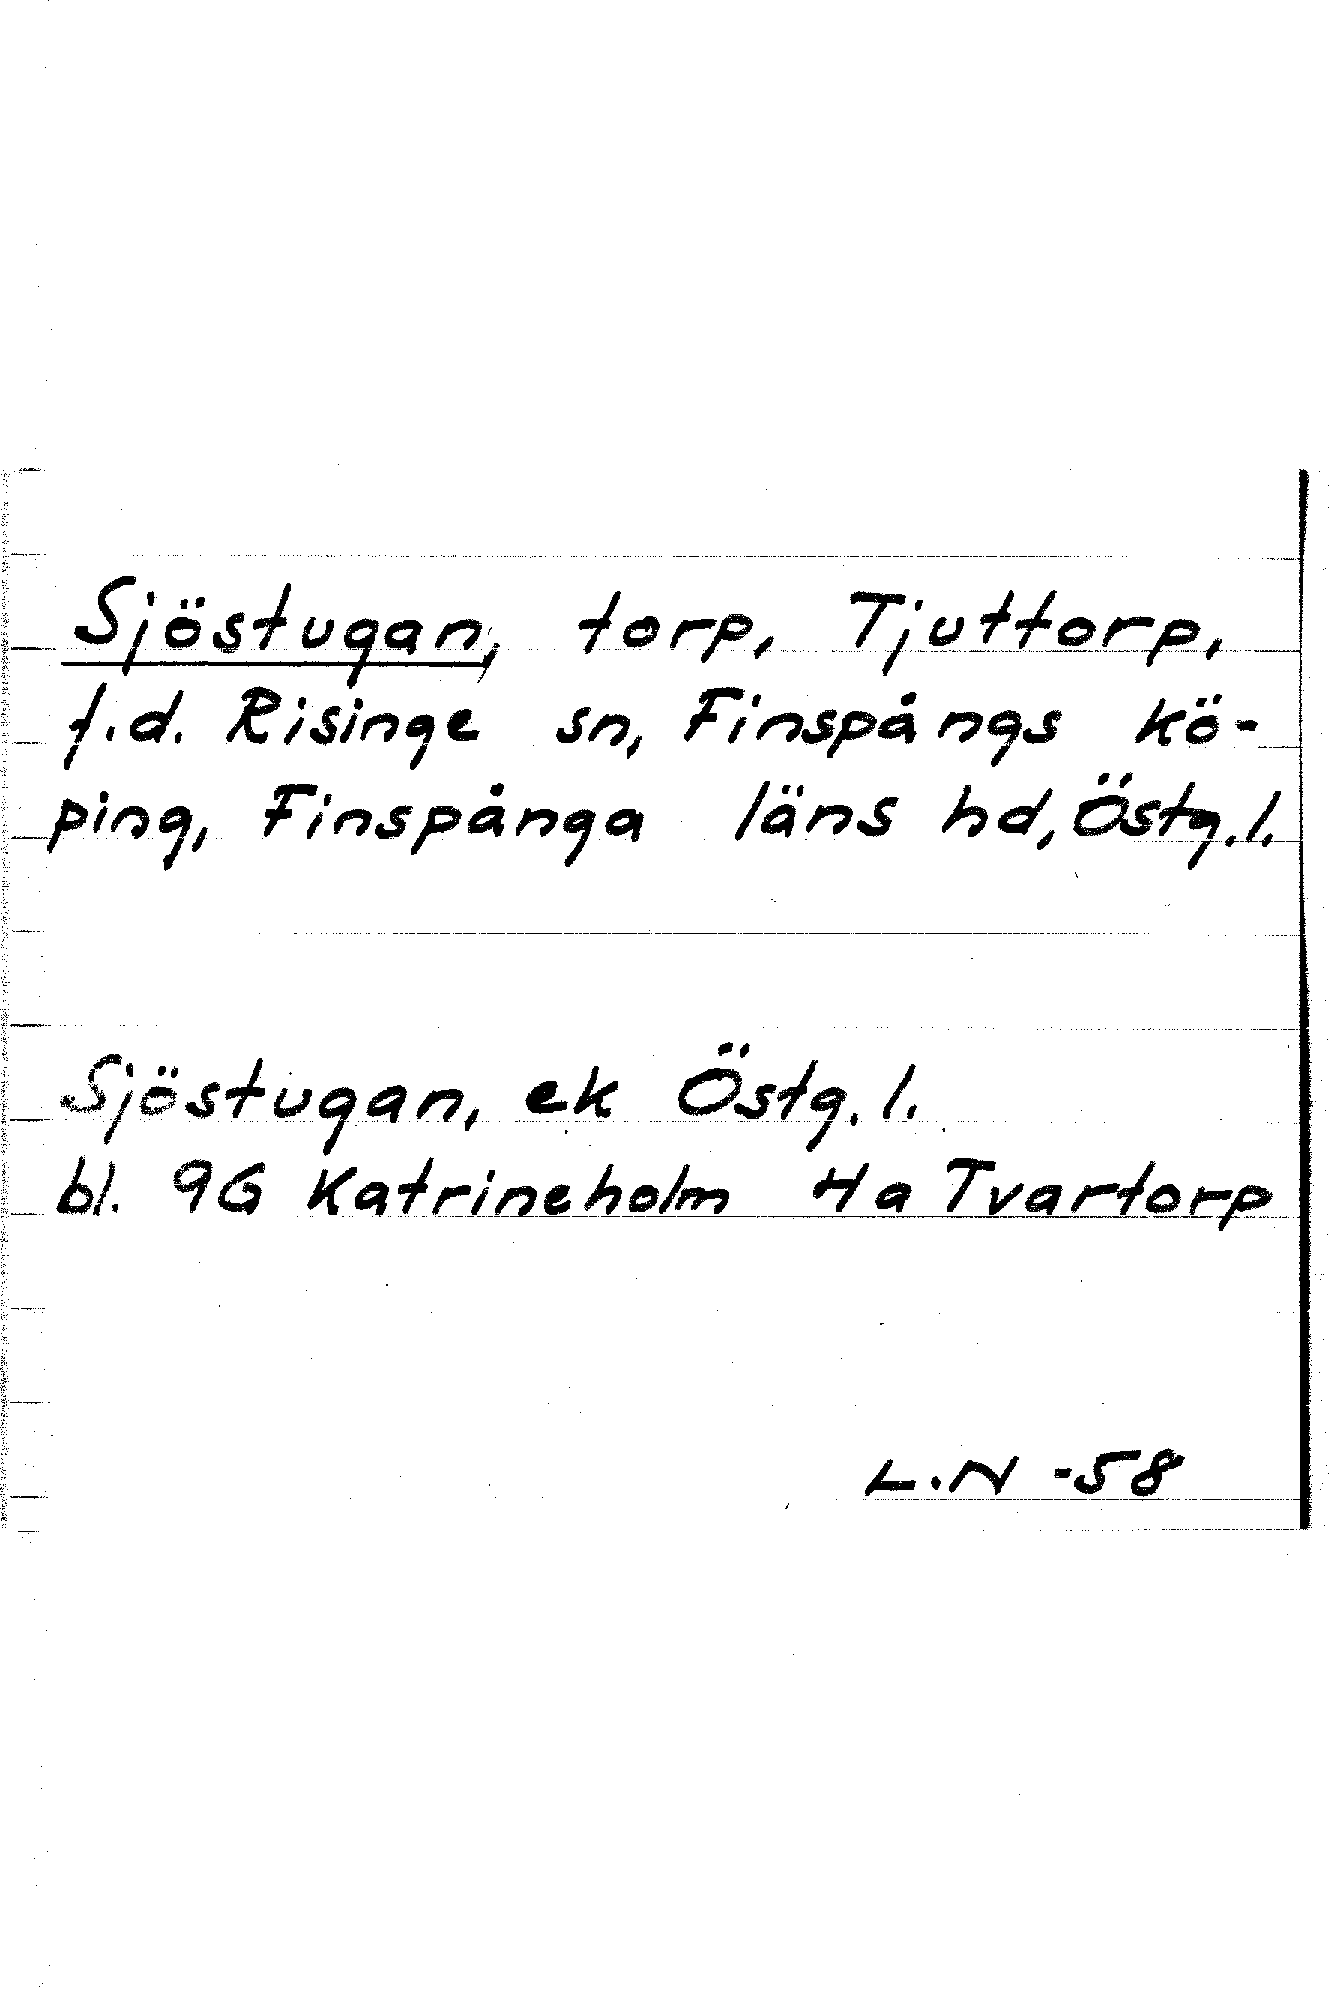 Sjöstugan, torp, Tjuttorp,
f.d. Risinge sn, Finspångs kö-
ping, Finspånga läns hd, Östg.l.
Sjöstugan, ek Östg.l.
bl. 9G Katrineholm 4a Tvartorp
L.N -58